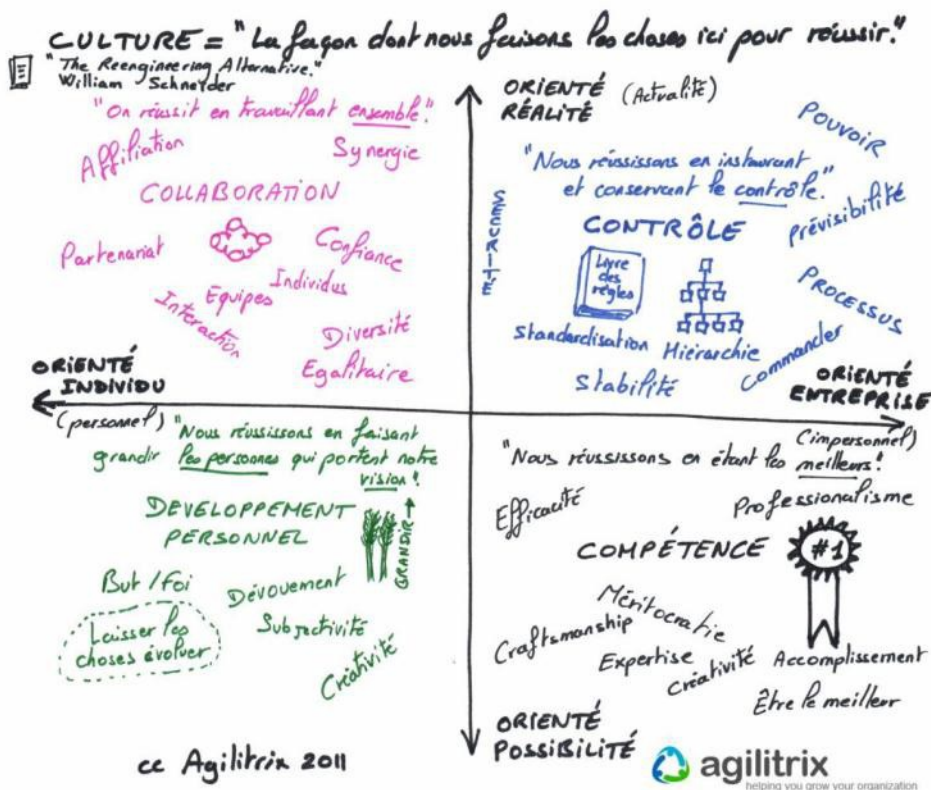 CULTURE = "La façon dont nous faisons les choses ici pour réussir."
"The Reengineering Alternative."
William Schneider
"On réussit en travaillant ensemble".
Affiliation
Synergie
COLLABORATION
Partenariat
Confiance
Individus
Equipes
Interaction
Diversité
Egalitaire
ORIENTÉ
RÉALITÉ (Actualité)
POUVOIR
"Nous réussissons en instaurant
et conservant le contrôle."
SECURITE
CONTRÔLE
prévisibilité
Livre
des
règles
PROCESSUS
Standardisation
Hiérarchie
Commander
Stabilité
ORIENTÉ
INDIVIDU
(personnel)
ORIENTÉ
ENTREPRISE
(impersonnel)
"Nous réussissons en faisant
grandir les personnes qui portent notre
vision".
DEVELOPPEMENT
PERSONNEL
GRANDIR
But / Foi
Dévouement
Laisser les
choses évoluer
Subjectivité
Créativité
"Nous réussissons en étant les meilleurs!
Efficacité
Professionalisme
COMPÉTENCE
#1
Méritocratie
Craftsmanship
Expertise
Créativité
Accomplissement
Être le meilleur
ORIENTÉ
POSSIBILITÉ
cc Agilitrix 2011
agilitrix
helping you grow your organization